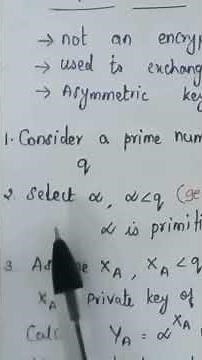 → not an encry
→ used to exchang
→ Asymmetric key
1. Consider a prime num
q
2. Select α, α<q (ge
α is primiti
3. A e X_A, X_A < q
X_A Private key of
Calc Y_A = α^X_A